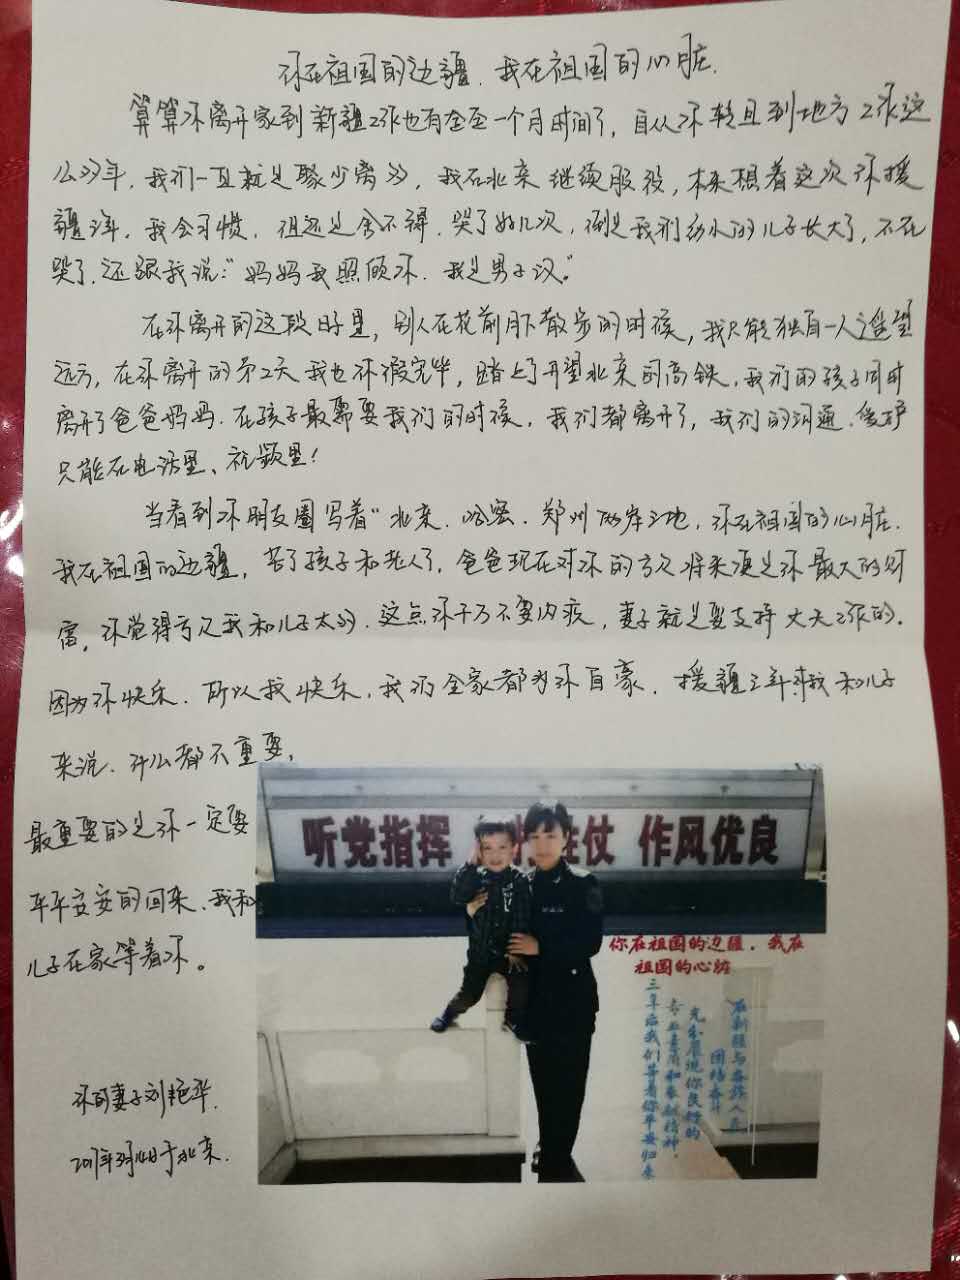 你在祖国的边疆.我在祖国的心脏.
算算你离开家到新疆工作也有整整一个月时间了,自从你转业到地方工作这
么多年,我们一直就是聚少离多,我在北京继续服役,本来想着这次你援
疆3年,我会习惯.但还是舍不得.哭了好几次,倒是我们幼小的儿子长大了,不在
哭了.还跟我说:"妈妈我照顾你.我是男子汉."
在你离开的这段日子里,别人在花前月下散步的时候,我只能独自一人遥望
远方,在你离开的第2天我也休假完毕,踏上了开望北京的高铁.我们的孩子同时
离开了爸爸妈妈.在孩子最需要我们的时候.我们都离开了,我们的沟通.爱护
只能在电话里、视频里!
当看到你朋友圈写着"北京.哈密.郑州两岸三地,你在祖国的心脏.
我在祖国的边疆,苦了孩子和老人了,爸爸现在对你的亏欠将来便是你最大的财
富,你觉得亏欠我和儿子太多.这点你千万不要内疚,妻子就是要支持丈夫工作的.
因为你快乐.所以我快乐,我们全家都为你自豪.援疆三年对我和儿子
来说.什么都不重要,
最重要的是你一定要
平平安安的回来.我和
儿子在家等着你。
听党指挥 能打胜仗 作风优良
你在祖国的边疆.我在
祖国的心脏
在新疆与各族人民
团结奋斗
充分展现你良好的
专业素质和奉献精神.
三年后我们等着你平安归来
你的妻子刘艳华.
2017年3月 于北京.